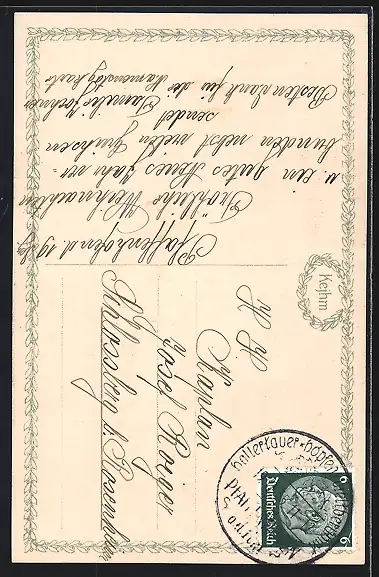 Pfaffenhofen d. 19/12
Fröhliche Weihnachten
u. ein gutes Neues Jahr ver-
bunden nebst vielen Grüßen
sendet
Familie
Besten Dank für die Namenstagkarte
H H
Kaplan
Josef
Schlossberg b. Rosenheim
Kejhm
hallertauer-hopfen
Deutsches Reich
6 6